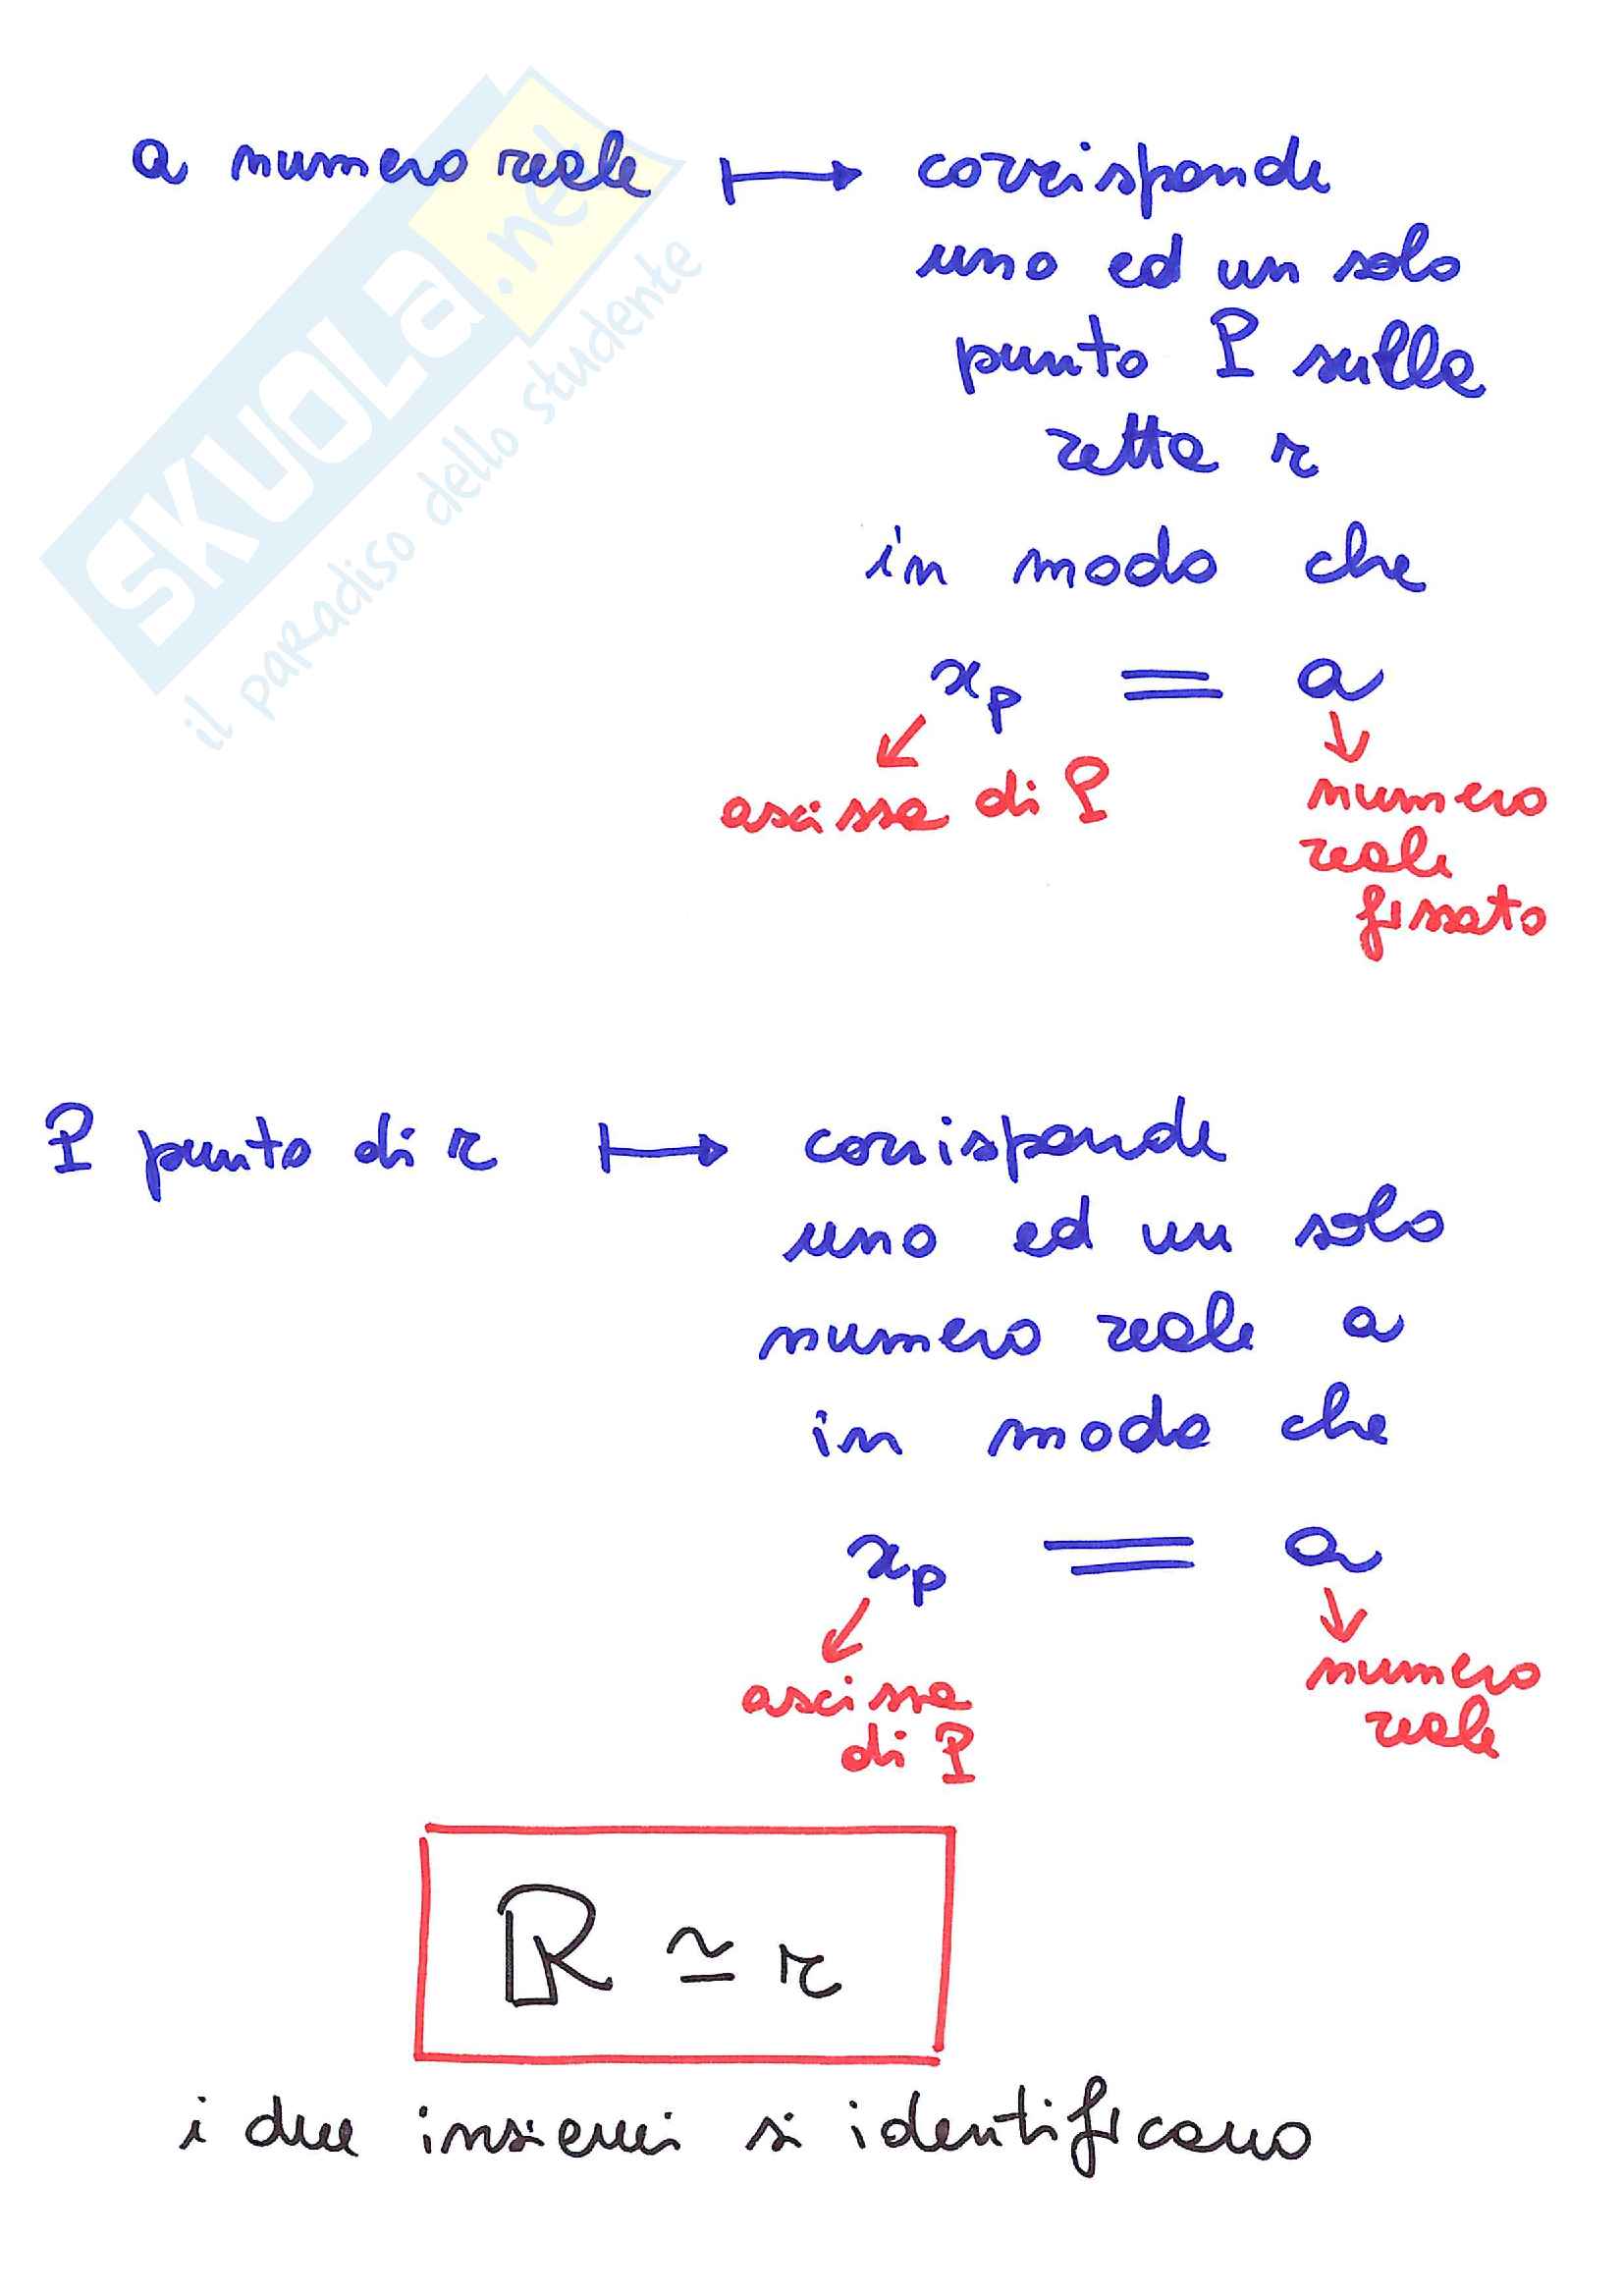 a numero reale ↦ corrisponde
uno ed un solo
punto P sulla
retta r
in modo che
x_P = a
ascissa di P
numero
reale
fissato
P punto di r ↦ corrisponde
uno ed un solo
numero reale a
in modo che
x_P = a
ascissa
di P
numero
reale
ℝ ≃ r
i due insiemi si identificano
SKUOLA.net
il paradiso dello studente